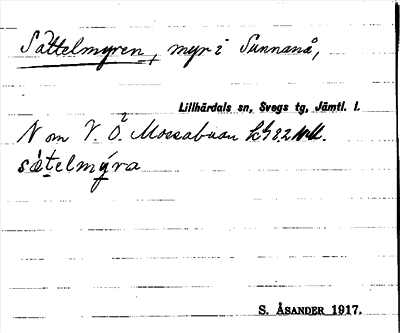 Sättelmyren, myr i Sunnanå,
Lillhärdals sn, Svegs tg, Jämtl. l.
N om V. Ö. Mossabuan
sätelmýra
S. ÅSANDER 1917.